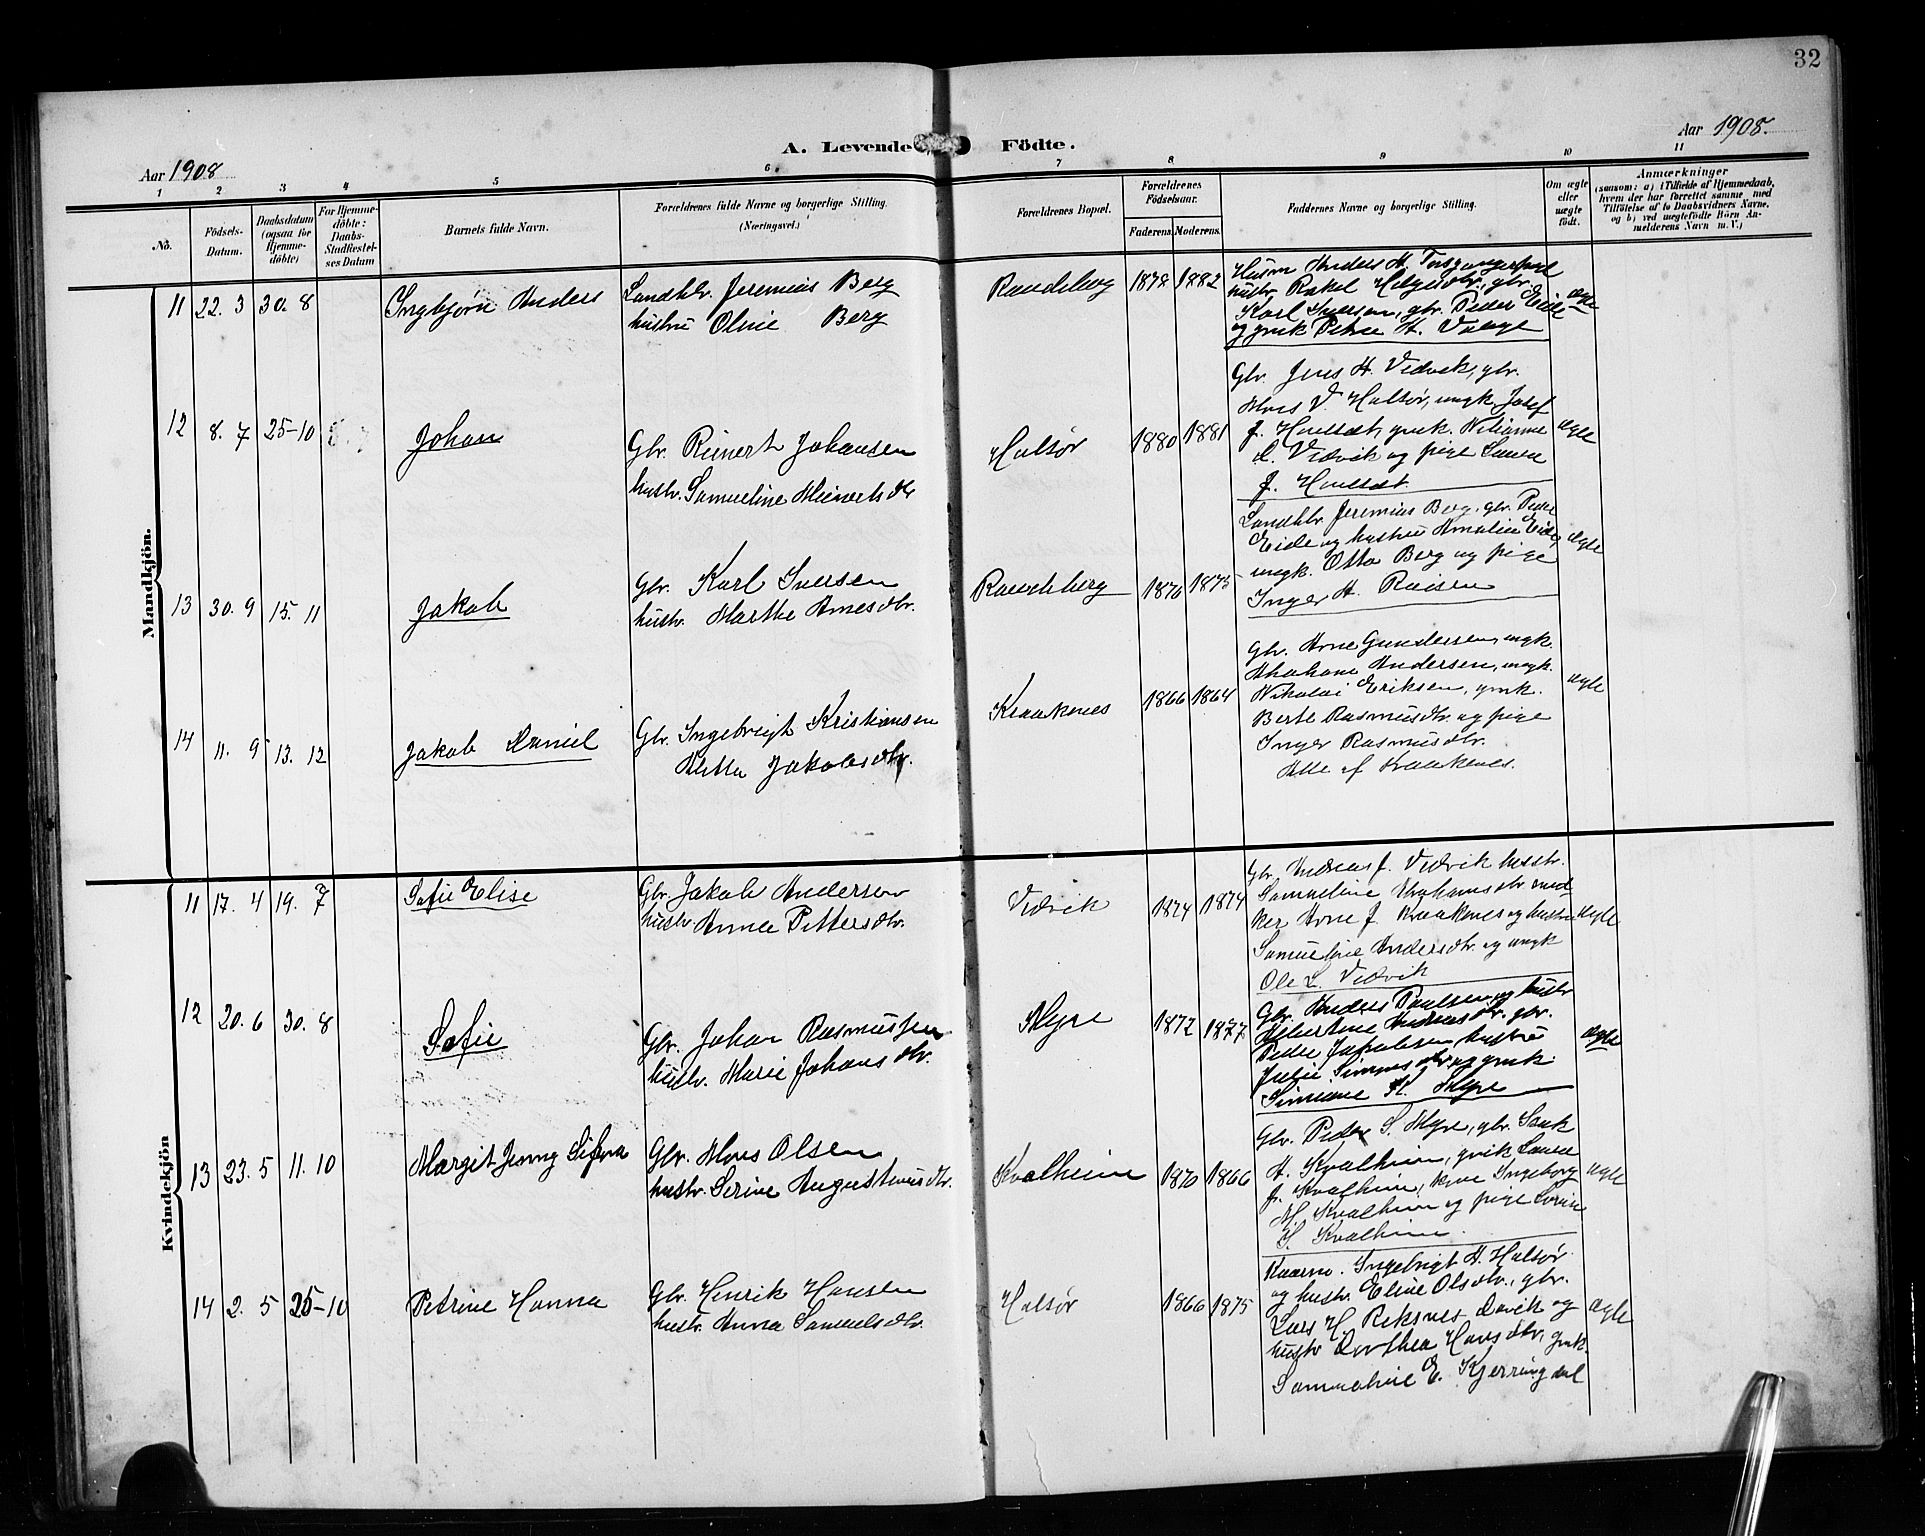 32
Aar 1908
A. Levende Födte.
Aar 1908.
1 2 3 4 5 6 7 8 9 10 11
No.
Födsels-Datum.
Daabsdatum (ogsaa for Hjemme-döbte)
For Hjemme-döbte: Daabs-Stadfestel-ses Datum
Barnets fulde Navn.
Forældrenes fulde Navne og borgerlige Stilling.
(Næringsvei.)
Forældrenes Bopæl.
Forældrenes Födselsaar.
Faderens. Moderens.
Faddernes Navne og borgerlige Stilling.
Om ægte eller uægte født.
Anmærkninger
(saasom: a) i Tilfælde af Hjemmedaab,
hvem der har forrettet samme med
Tilføielse af to Daabsvidners Navne,
og b) ved uægtefødte Börn An-
melderens Navn m. V.)
Mandkjön.
11 22. 3 30. 8 Ingbjørn Anders
Landhlr. Jeremias Berg
hustru Oline Berg
Raudeberg 1878 1882
Karl Iversen, gbr. Peder Eide
ægte
12 8. 7 25-10 Johan
Gbr. Reinert Johansen
hustr. Samueline Meinertsdtr
Halsør 1880 1881
Gbr. Jens A. Vedvik, gbr.
Mons V. Halsør, ungk. Josef
L. Vedvik og pige Laura
ægte
13 30. 9 15. 11 Jakob
Gbr. Karl Iversen
hustr. Marthe Arnesdtr.
Raudeberg 1870 1875
Landhlr Jeremias Berg, gbr. Peder
Eide og hustru Amalie Eide
ungk. Otto Berg og pige
Inger A.
ægte
14 11. 9 13. 12 Jakob Daniel
Gbr. Ingebrigt Kristiansen
Jakobsdtr.
Kraakenes 1866 1864
Gbr. Arne Gundersen, ungk.
Andersen, ungk.
Nikolai Eriksen, gmk.
Berte Rasmusdtr. og pige
Inger Rasmusdtr.
Alle af Kraakenes.
ægte
Kvindekjön
11 17. 4 19. 7 Sofie Elise
Gbr Jakob Anderson
hustr Anna Pettersdtr.
Vedvik 1874 1874
Gbr Andreas J. Vedvik hustr.
Samueline
ker Arne J. Kraakenes og hustru
Samueline Andersdtr. og ungk
Ole L. Vedvik
ægte
12 20. 6 30. 8 Sofie
Gbr. Johan Rasmussen
hustr. Marie Johansdtr.
Myre 1872 1877
Gbr. Anders Paulsen og hustr
Albertine Andreasdtr. gbr.
Peder Jakobsen hustru
Julie Simonsdtr og gmk
Simione K. Myre
ægte
13 23. 5 11. 10 Margit Jenny
Gbr. Mons Olsen
hustr. Serine Augustinusdtr.
Kvalheim 1870 1866
Gbr. Peder S. Myre, gbr. Isak
A. Kvalheim, gmk Laura
J. Kvalheim, kone Ingeborg
M. Kvalheim og pige
S. Kvalheim.
ægte
14 2. 5 25-10 Petrine Hanna
Gbr. Henrik Hansen
hustr. Anna Samuelsdtr.
Halsør 1866 1875
Kaarm. Ingebrigt A. Halsør
og hustr. Eline Olsdtr., gbr.
Lars H. Reksnes Davik og
hustr Dorthea Hansdtr., gmk.
Samueline E. Kjerringdal
ægte